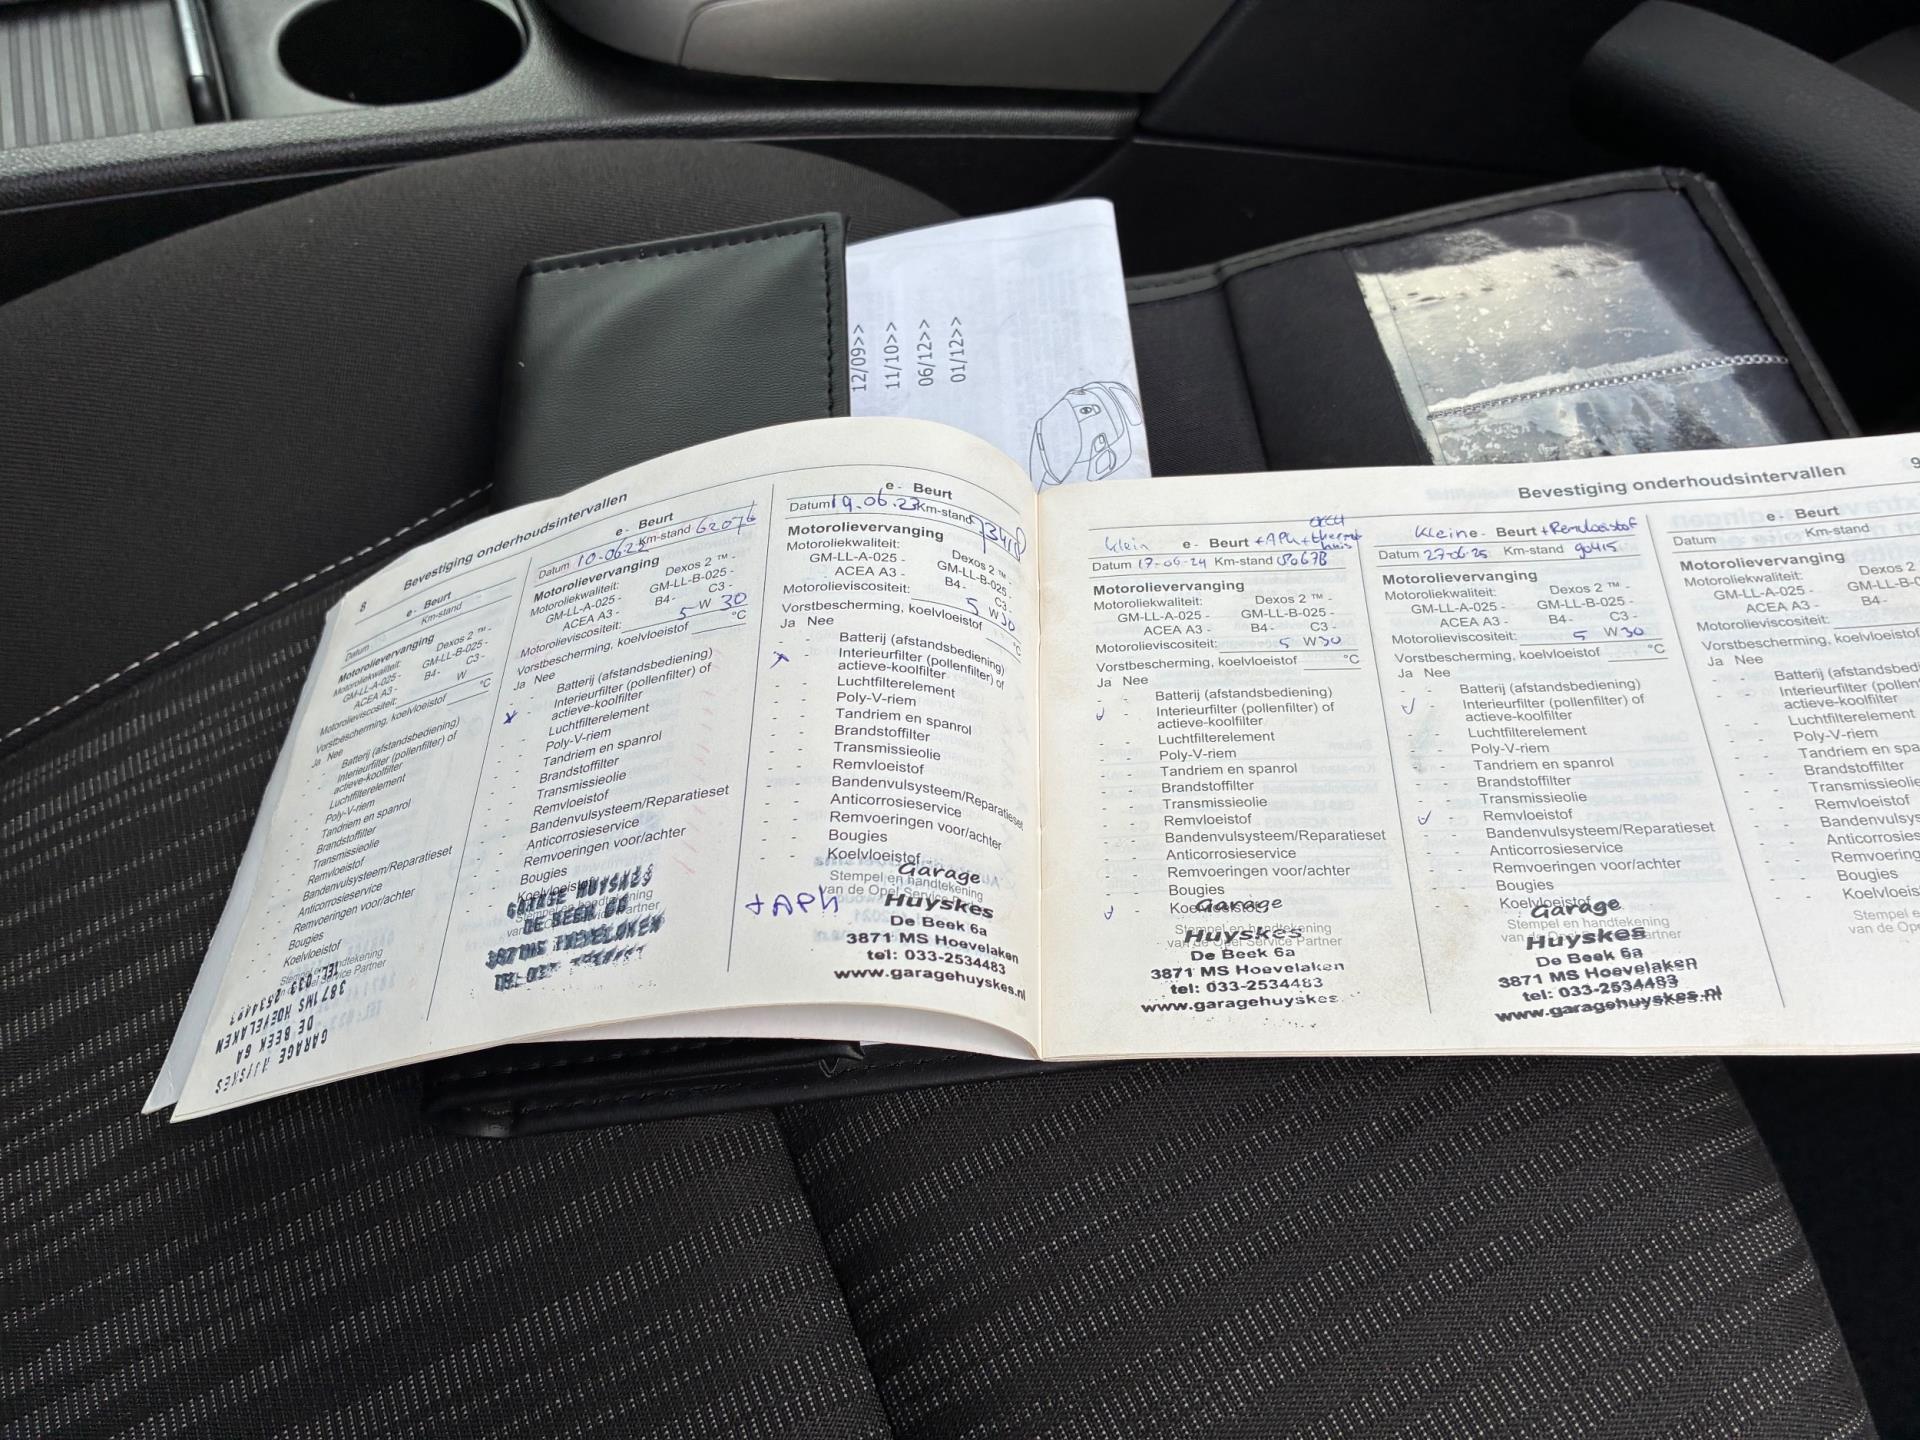 12/09>>
11/10>>
06/12>>
01/12>>
8 Bevestiging onderhoudsintervallen
e - Beurt
Datum Km-stand
Motorolievervanging
Motoroliekwaliteit: Dexos 2 ™ -
GM-LL-A-025 - GM-LL-B-025 -
ACEA A3 - B4- C3 -
Motorolieviscositeit: W
Vorstbescherming, koelvloeistof °C
Ja Nee
- - Batterij (afstandsbediening)
- - Interieurfilter (pollenfilter) of
actieve-koolfilter
- - Luchtfilterelement
- - Poly-V-riem
- - Tandriem en spanrol
- - Brandstoffilter
- - Transmissieolie
- - Remvloeistof
- - Bandenvulsysteem/Reparatieset
- - Anticorrosieservice
- - Remvoeringen voor/achter
- - Bougies
- - Koelvloeistof
Stempel en handtekening
van de Opel Service Partner
DE BEEK 6A
3871MS HOEVELAKEN
TEL. 033 2534483
e - Beurt
Datum 10-06-22 Km-stand 62076
Motorolievervanging
Motoroliekwaliteit: Dexos 2 ™ -
GM-LL-A-025 - GM-LL-B-025 -
ACEA A3 - B4- C3 -
Motorolieviscositeit: 5 W 30
Vorstbescherming, koelvloeistof °C
Ja Nee
- - Batterij (afstandsbediening)
x - Interieurfilter (pollenfilter) of
actieve-koolfilter
- - Luchtfilterelement
- - Poly-V-riem
- - Tandriem en spanrol
- - Brandstoffilter
- - Transmissieolie
- - Remvloeistof
- - Bandenvulsysteem/Reparatieset
- - Anticorrosieservice
- - Remvoeringen voor/achter
- - Bougies
- - Koelvloeistof
Stempel en handtekening
van de Opel Service Partner
GARAGE HUYSKES
DE BEEK 6A
3871MS HOEVELAKEN
e - Beurt
Datum 19.06.23 Km-stand 73418
Motorolievervanging
Motoroliekwaliteit: Dexos 2 ™ -
GM-LL-A-025 - GM-LL-B-025 -
ACEA A3 - B4- C3 -
Motorolieviscositeit: 5 W 30
Vorstbescherming, koelvloeistof °C
Ja Nee
- - Batterij (afstandsbediening)
x - Interieurfilter (pollenfilter) of
actieve-koolfilter
- - Luchtfilterelement
- - Poly-V-riem
- - Tandriem en spanrol
- - Brandstoffilter
- - Transmissieolie
- - Remvloeistof
- - Bandenvulsysteem/Reparatieset
- - Anticorrosieservice
- - Remvoeringen voor/achter
- - Bougies
- - Koelvloeistof
Stempel en handtekening
van de Opel Service
+APK
Garage
Huyskes
De Beek 6a
3871 MS Hoevelaken
tel: 033-2534483
www.garagehuyskes.nl
Bevestiging onderhoudsintervallen 9
Klein e - Beurt +APK+thermohuis
Datum 17-06-24 Km-stand 80678
Motorolievervanging
Motoroliekwaliteit: Dexos 2 ™ -
GM-LL-A-025 - GM-LL-B-025 -
ACEA A3 - B4- C3 -
Motorolieviscositeit: 5 W 30
Vorstbescherming, koelvloeistof °C
Ja Nee
- - Batterij (afstandsbediening)
✓ - Interieurfilter (pollenfilter) of
actieve-koolfilter
- - Luchtfilterelement
- - Poly-V-riem
- - Tandriem en spanrol
- - Brandstoffilter
- - Transmissieolie
- - Remvloeistof
- - Bandenvulsysteem/Reparatieset
- - Anticorrosieservice
- - Remvoeringen voor/achter
- - Bougies
✓ - Koelvloeistof
Stempel en handtekening
van de Opel Service Partner
Garage
Huyskes
De Beek 6a
3871 MS Hoevelaken
tel: 033-2534483
www.garagehuyskes
Kleine - Beurt +Remvloeistof
Datum 27-06-25 Km-stand 90415
Motorolievervanging
Motoroliekwaliteit: Dexos 2 ™ -
GM-LL-A-025 - GM-LL-B-025 -
ACEA A3 - B4- C3 -
Motorolieviscositeit: 5 W 30
Vorstbescherming, koelvloeistof °C
Ja Nee
- - Batterij (afstandsbediening)
✓ - Interieurfilter (pollenfilter) of
actieve-koolfilter
- - Luchtfilterelement
- - Poly-V-riem
- - Tandriem en spanrol
- - Brandstoffilter
- - Transmissieolie
✓ - Remvloeistof
- - Bandenvulsysteem/Reparatieset
- - Anticorrosieservice
- - Remvoeringen voor/achter
- - Bougies
- - Koelvloeistof
Stempel en handtekening
van de Opel Service Partner
Garage
Huyskes
De Beek 6a
3871 MS Hoevelaken
tel: 033-2534483
www.garagehuyskes.nl
e - Beurt
Datum Km-stand
Motorolievervanging
Motoroliekwaliteit: Dexos 2
GM-LL-A-025 - GM-LL-B-0
ACEA A3 - B4-
Motorolieviscositeit:
Vorstbescherming, koelvloeistof
Ja Nee
- - Batterij (afstandsbedien
- - Interieurfilter (pollen
actieve-koolfilter
- - Luchtfilterelement
- - Poly-V-riem
- - Tandriem en spa
- - Brandstoffilter
- - Transmissieolie
- - Remvloeistof
- - Bandenvulsyste
- - Anticorrosieser
- - Remvoering
- - Bougies
- - Koelvloeis
Stempel en
van de Ope